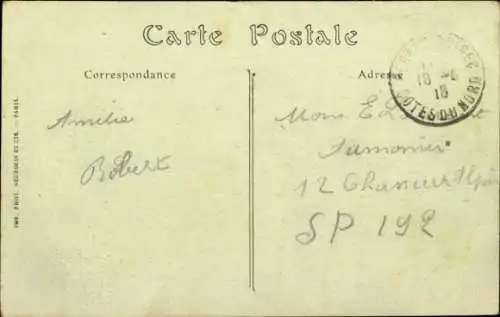 Carte Postale
Correspondance
Adresse
18 -6
15
COTES DU NORD
Amélie
Robert
Mons E
Aumonier
12 Chasseurs Alpins
SP 192
IMP. PHOT. NEURDEIN ET CIE. — PARIS.